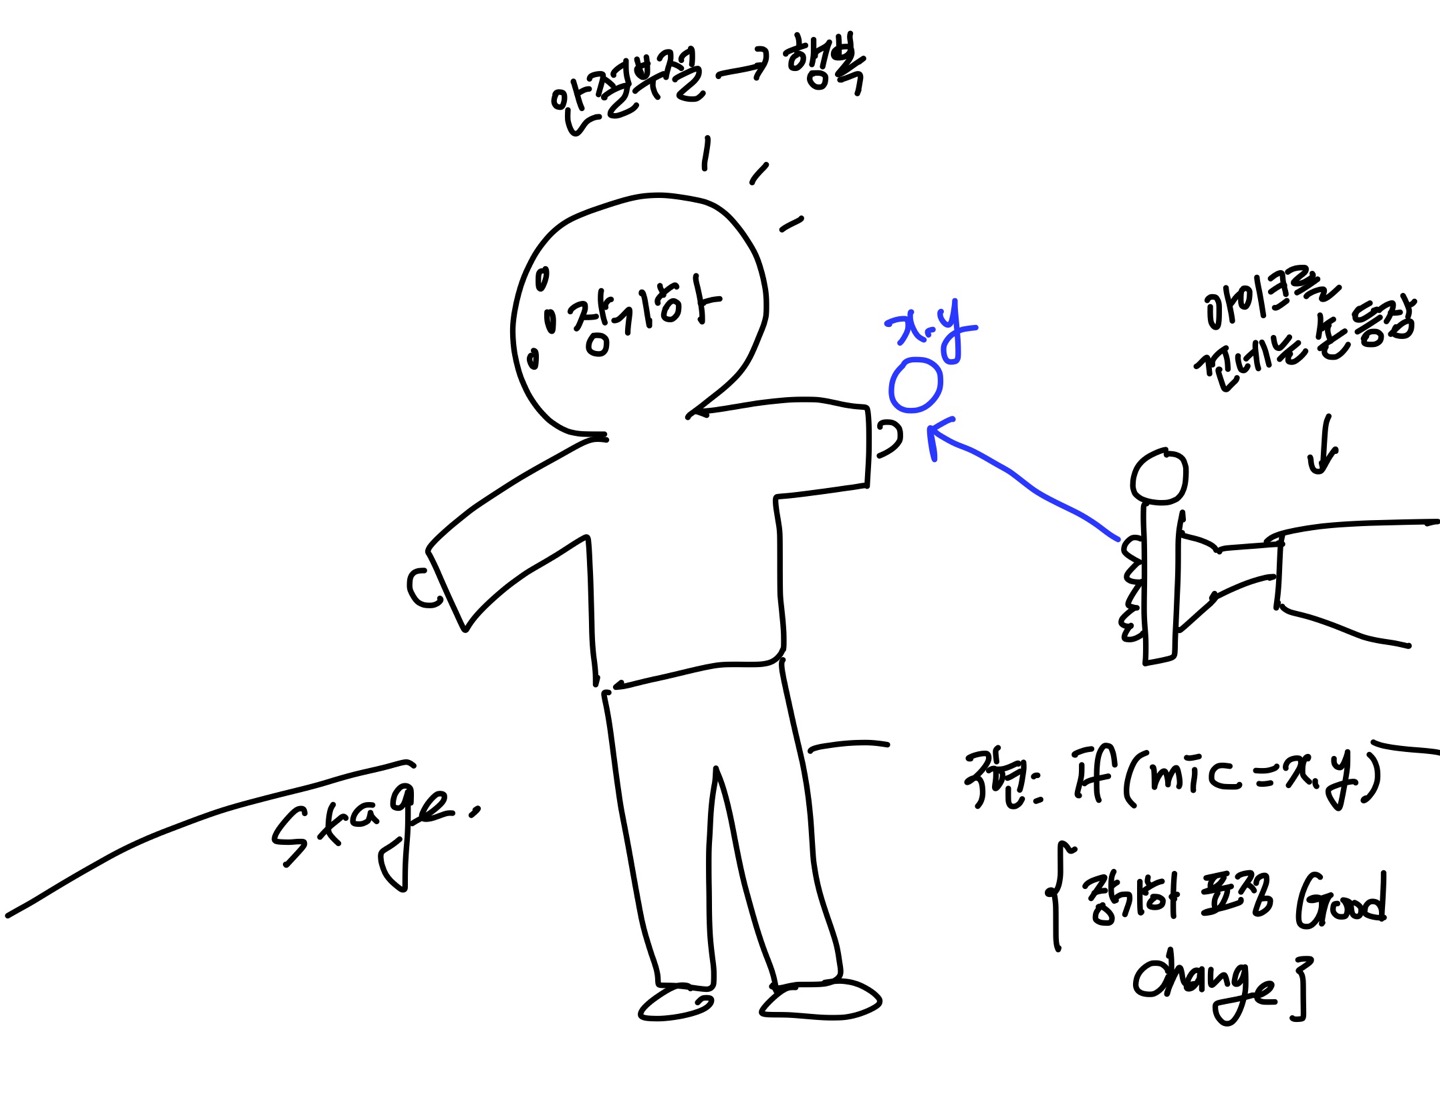 안절부절 → 행복
장기하
x.y
마이크를
건네는 손 등장
stage.
구현: if(mic=x.y)
{ 장기하 표정 Good
change }